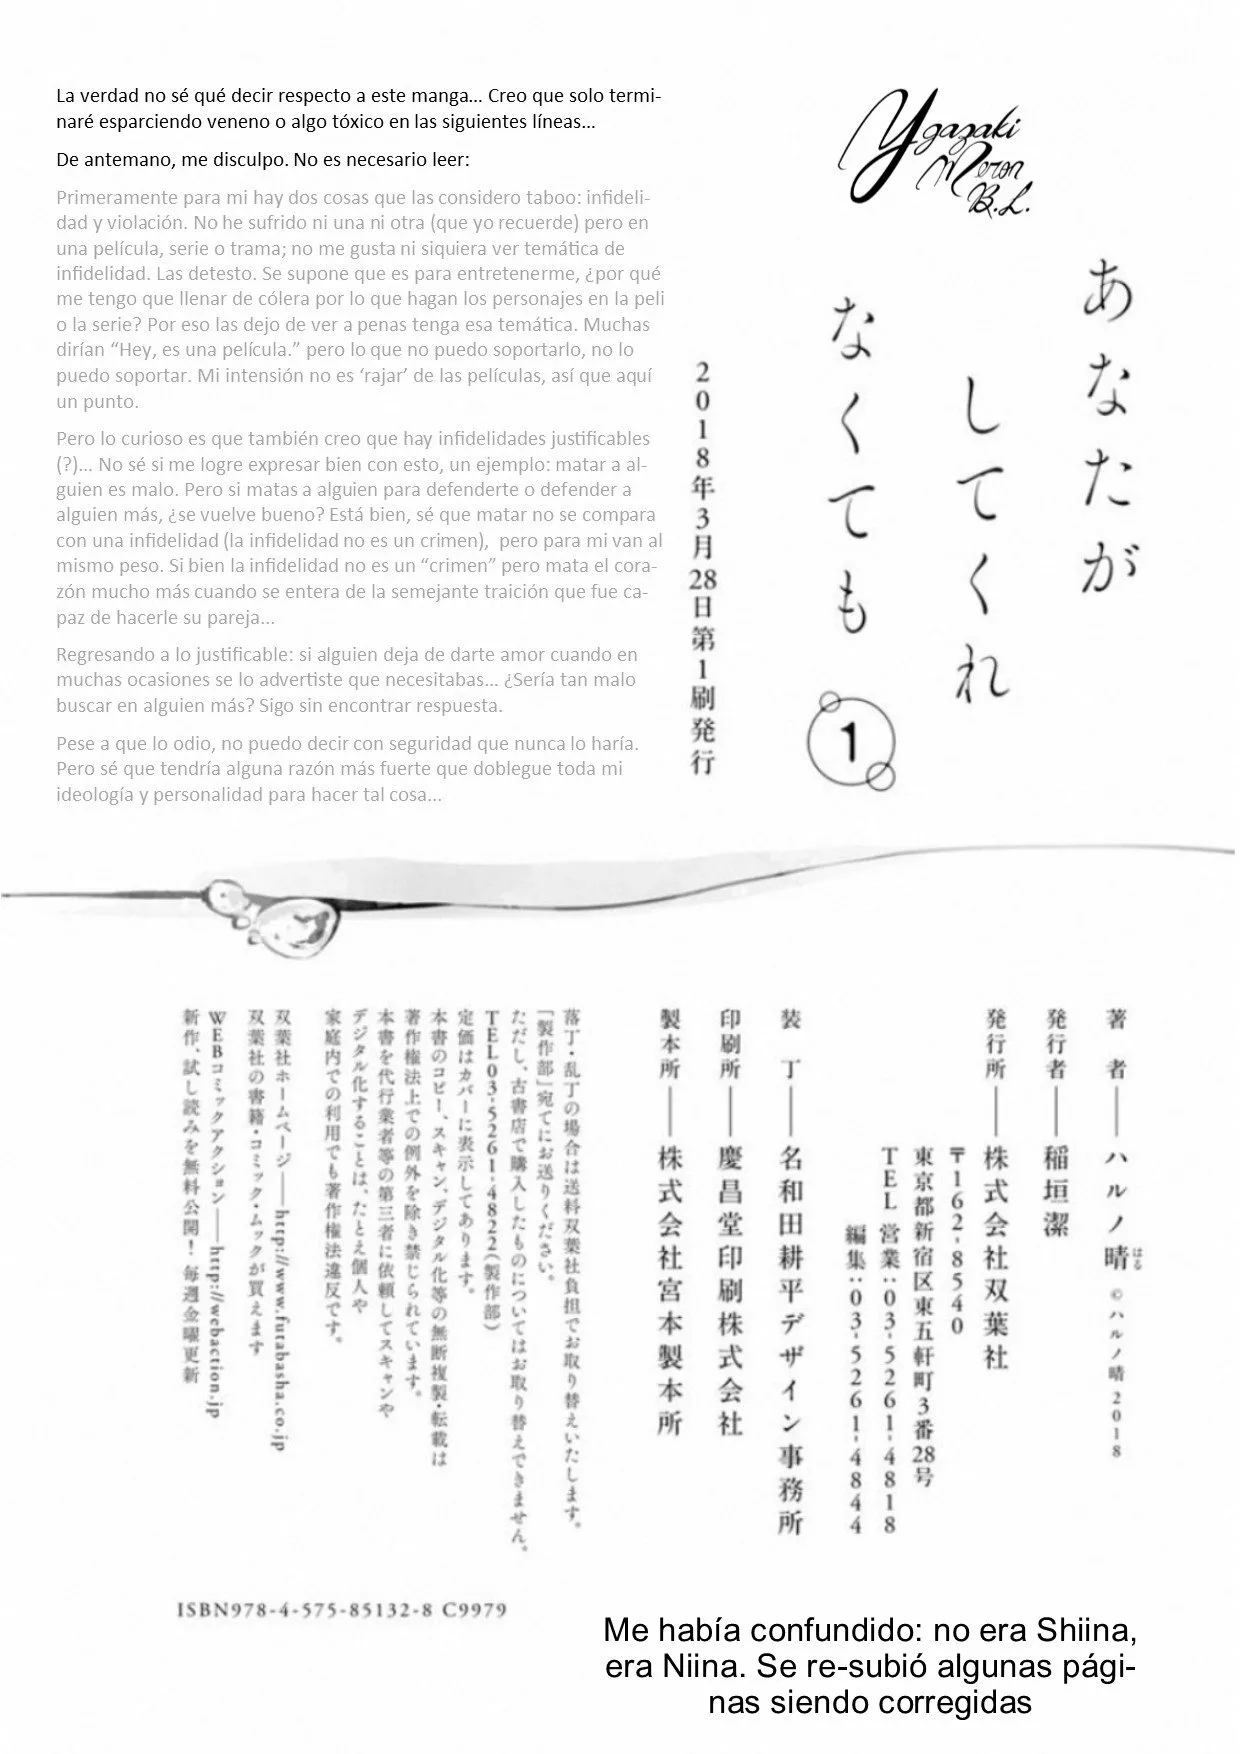 La verdad no sé qué decir respecto a este manga... Creo que solo termi-
naré esparciendo veneno o algo tóxico en las siguientes líneas...
De antemano, me disculpo. No es necesario leer:
Primeramente para mi hay dos cosas que las considero taboo: infideli-
dad y violación. No he sufrido ni una ni otra (que yo recuerde) pero en
una película, serie o trama; no me gusta ni siquiera ver temática de
infidelidad. Las detesto. Se supone que es para entretenerme, ¿por qué
me tengo que llenar de cólera por lo que hagan los personajes en la peli
o la serie? Por eso las dejo de ver a penas tenga esa temática. Muchas
dirían “Hey, es una película.” pero lo que no puedo soportarlo, no lo
puedo soportar. Mi intensión no es ‘rajar’ de las películas, así que aquí
un punto.
Pero lo curioso es que también creo que hay infidelidades justificables
(?)... No sé si me logre expresar bien con esto, un ejemplo: matar a al-
guien es malo. Pero si matas a alguien para defenderte o defender a
alguien más, ¿se vuelve bueno? Está bien, sé que matar no se compara
con una infidelidad (la infidelidad no es un crimen), pero para mi van al
mismo peso. Si bien la infidelidad no es un “crimen” pero mata el cora-
zón mucho más cuando se entera de la semejante traición que fue ca-
paz de hacerle su pareja...
Regresando a lo justificable: si alguien deja de darte amor cuando en
muchas ocasiones se lo advertiste que necesitabas... ¿Sería tan malo
buscar en alguien más? Sigo sin encontrar respuesta.
Pese a que lo odio, no puedo decir con seguridad que nunca lo haría.
Pero sé que tendría alguna razón más fuerte que doblegue toda mi
ideología y personalidad para hacer tal cosa...
Ygazaki
Meron
B.L.
あなたが
してくれ
なくても
1
2018年3月28日第1刷発行
著 者――ハルノ晴 ©ハルノ晴 2018
はる
発行者――稲垣潔
発行所――株式会社双葉社
〒162-8540
東京都新宿区東五軒町3番28号
TEL 営業：03-5261-4818
編集：03-5261-4844
装 丁――名和田耕平デザイン事務所
印刷所――慶昌堂印刷株式会社
製本所――株式会社宮本製本所
落丁・乱丁の場合は送料双葉社負担でお取り替えいたします。
「製作部」宛てにお送りください。
ただし、古書店で購入したものについてはお取り替えできません。
TEL03-5261-4822（製作部）
定価はカバーに表示してあります。
本書のコピー、スキャン、デジタル化等の無断複製・転載は
著作権法上での例外を除き禁じられています。
本書を代行業者等の第三者に依頼してスキャンや
デジタル化することは、たとえ個人や
家庭内での利用でも著作権法違反です。
双葉社ホームページ――http://www.futabasha.co.jp
双葉社の書籍・コミック・ムックが買えます
WEBコミックアクション――http://webaction.jp
新作、試し読みを無料公開！毎週金曜更新
ISBN978-4-575-85132-8 C9979
Me había confundido: no era Shiina,
era Niina. Se re-subió algunas pági-
nas siendo corregidas